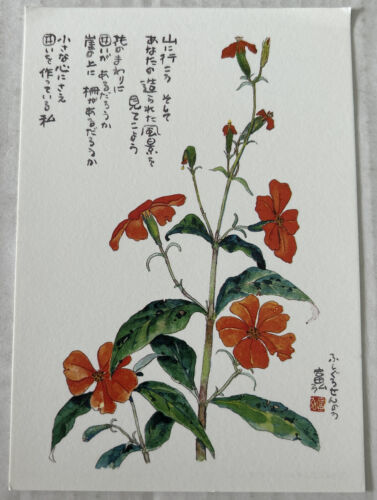 山に行こう そして
あなたの造られた風景を
見てこよう
花のまわりに
囲いが あるだろうか
崖の上に 柵があるだろうか
小さな心にさえ
囲いを作っている 私
ふしぐろせんのう
富弘